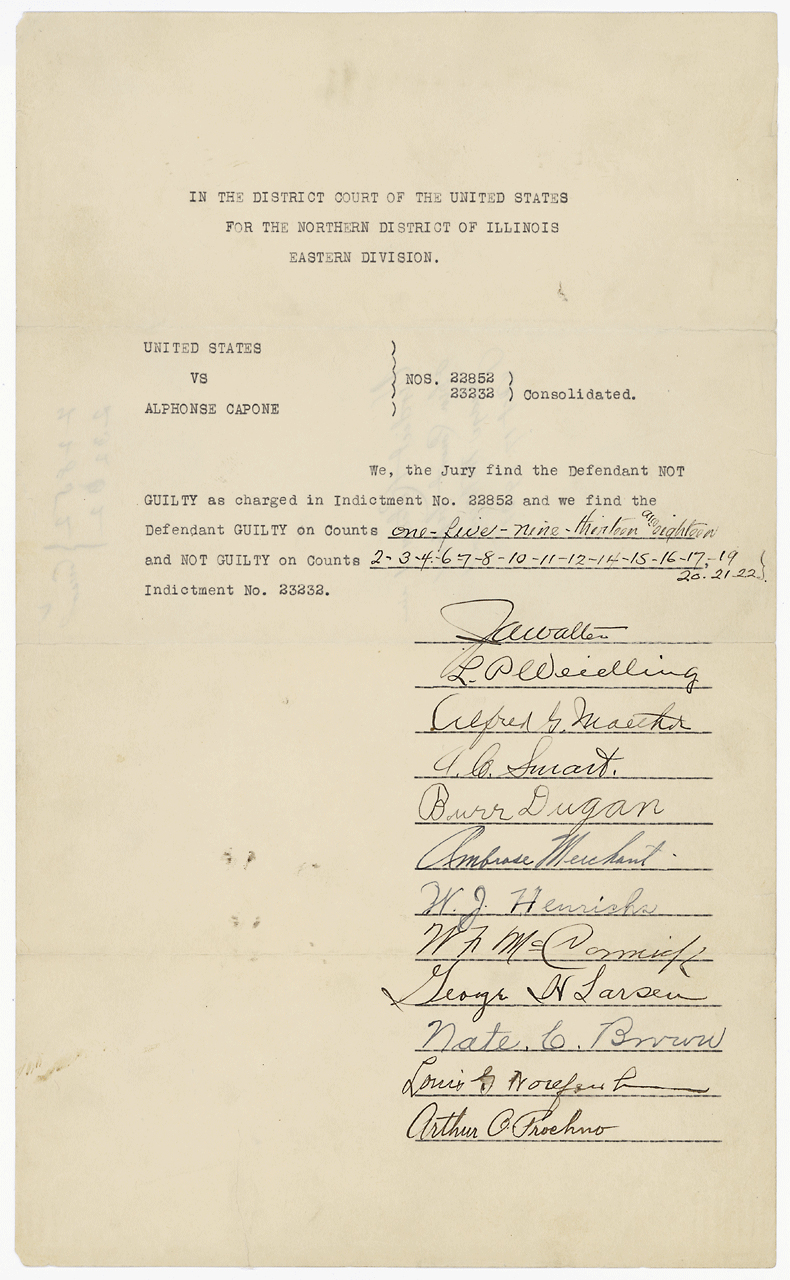 IN THE DISTRICT COURT OF THE UNITED STATES
FOR THE NORTHERN DISTRICT OF ILLINOIS
EASTERN DIVISION.
UNITED STATES )
VS ) NOS. 22852 )
) 23232 ) Consolidated.
ALPHONSE CAPONE )
We, the Jury find the Defendant NOT
GUILTY as charged in Indictment No. 22852 and we find the
Defendant GUILTY on Counts one-five-nine-thirteen and eighteen
and NOT GUILTY on Counts 2-3-4-6-7-8-10-11-12-14-15-16-17-19
20-21-22
Indictment No. 23232.
L. P. Weidling
Alfred G. Maether
A. C. Smart.
Burr Dugan
Ambrose Merchant
W. J. Henrichs
W F McCormick
George H Larsen
Nate. C. Brown
Louis G
Arthur O. Prochno